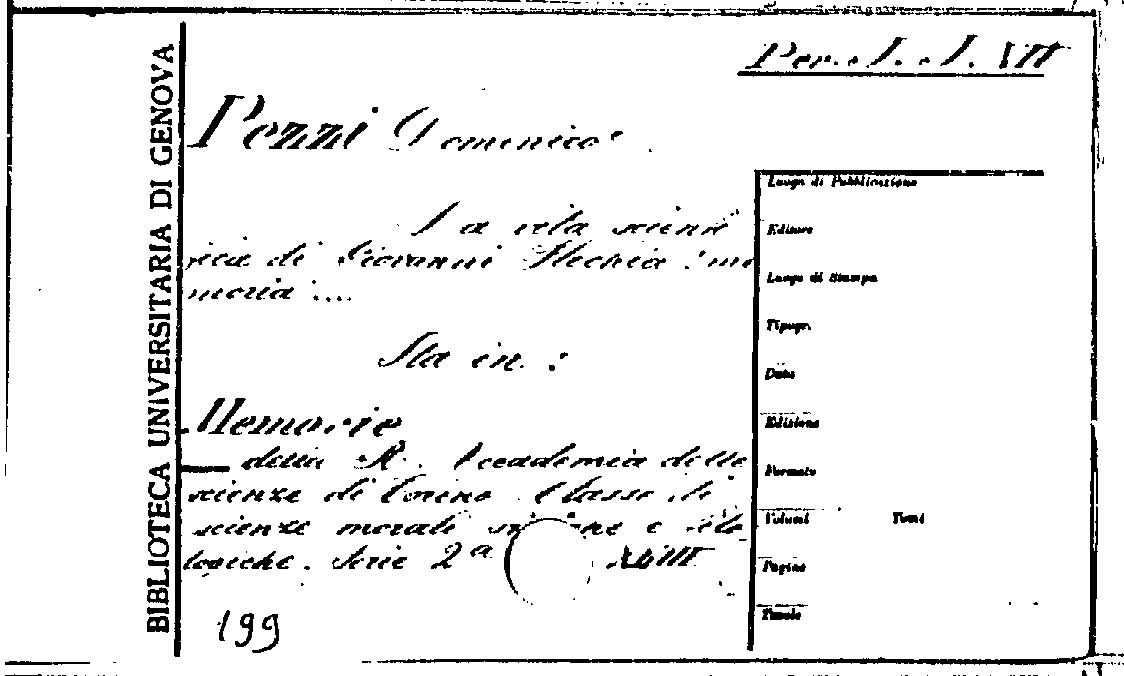 BIBLIOTECA UNIVERSITARIA DI GENOVA
Per. I. I. VII
Pezzi Domenico
La vita scienti
fica di Giovanni Flechia : me
moria ....
Sta in :
Memorie
della R. Accademia delle
scienze di Torino Classe di
scienze morali e filo
logiche. Serie 2ª
199
Luogo di Pubblicazione
Editore
Luogo di Stampa
Tipogr.
Data
Edizione
Formato
Volumi Tomi
Pagine
Tavole